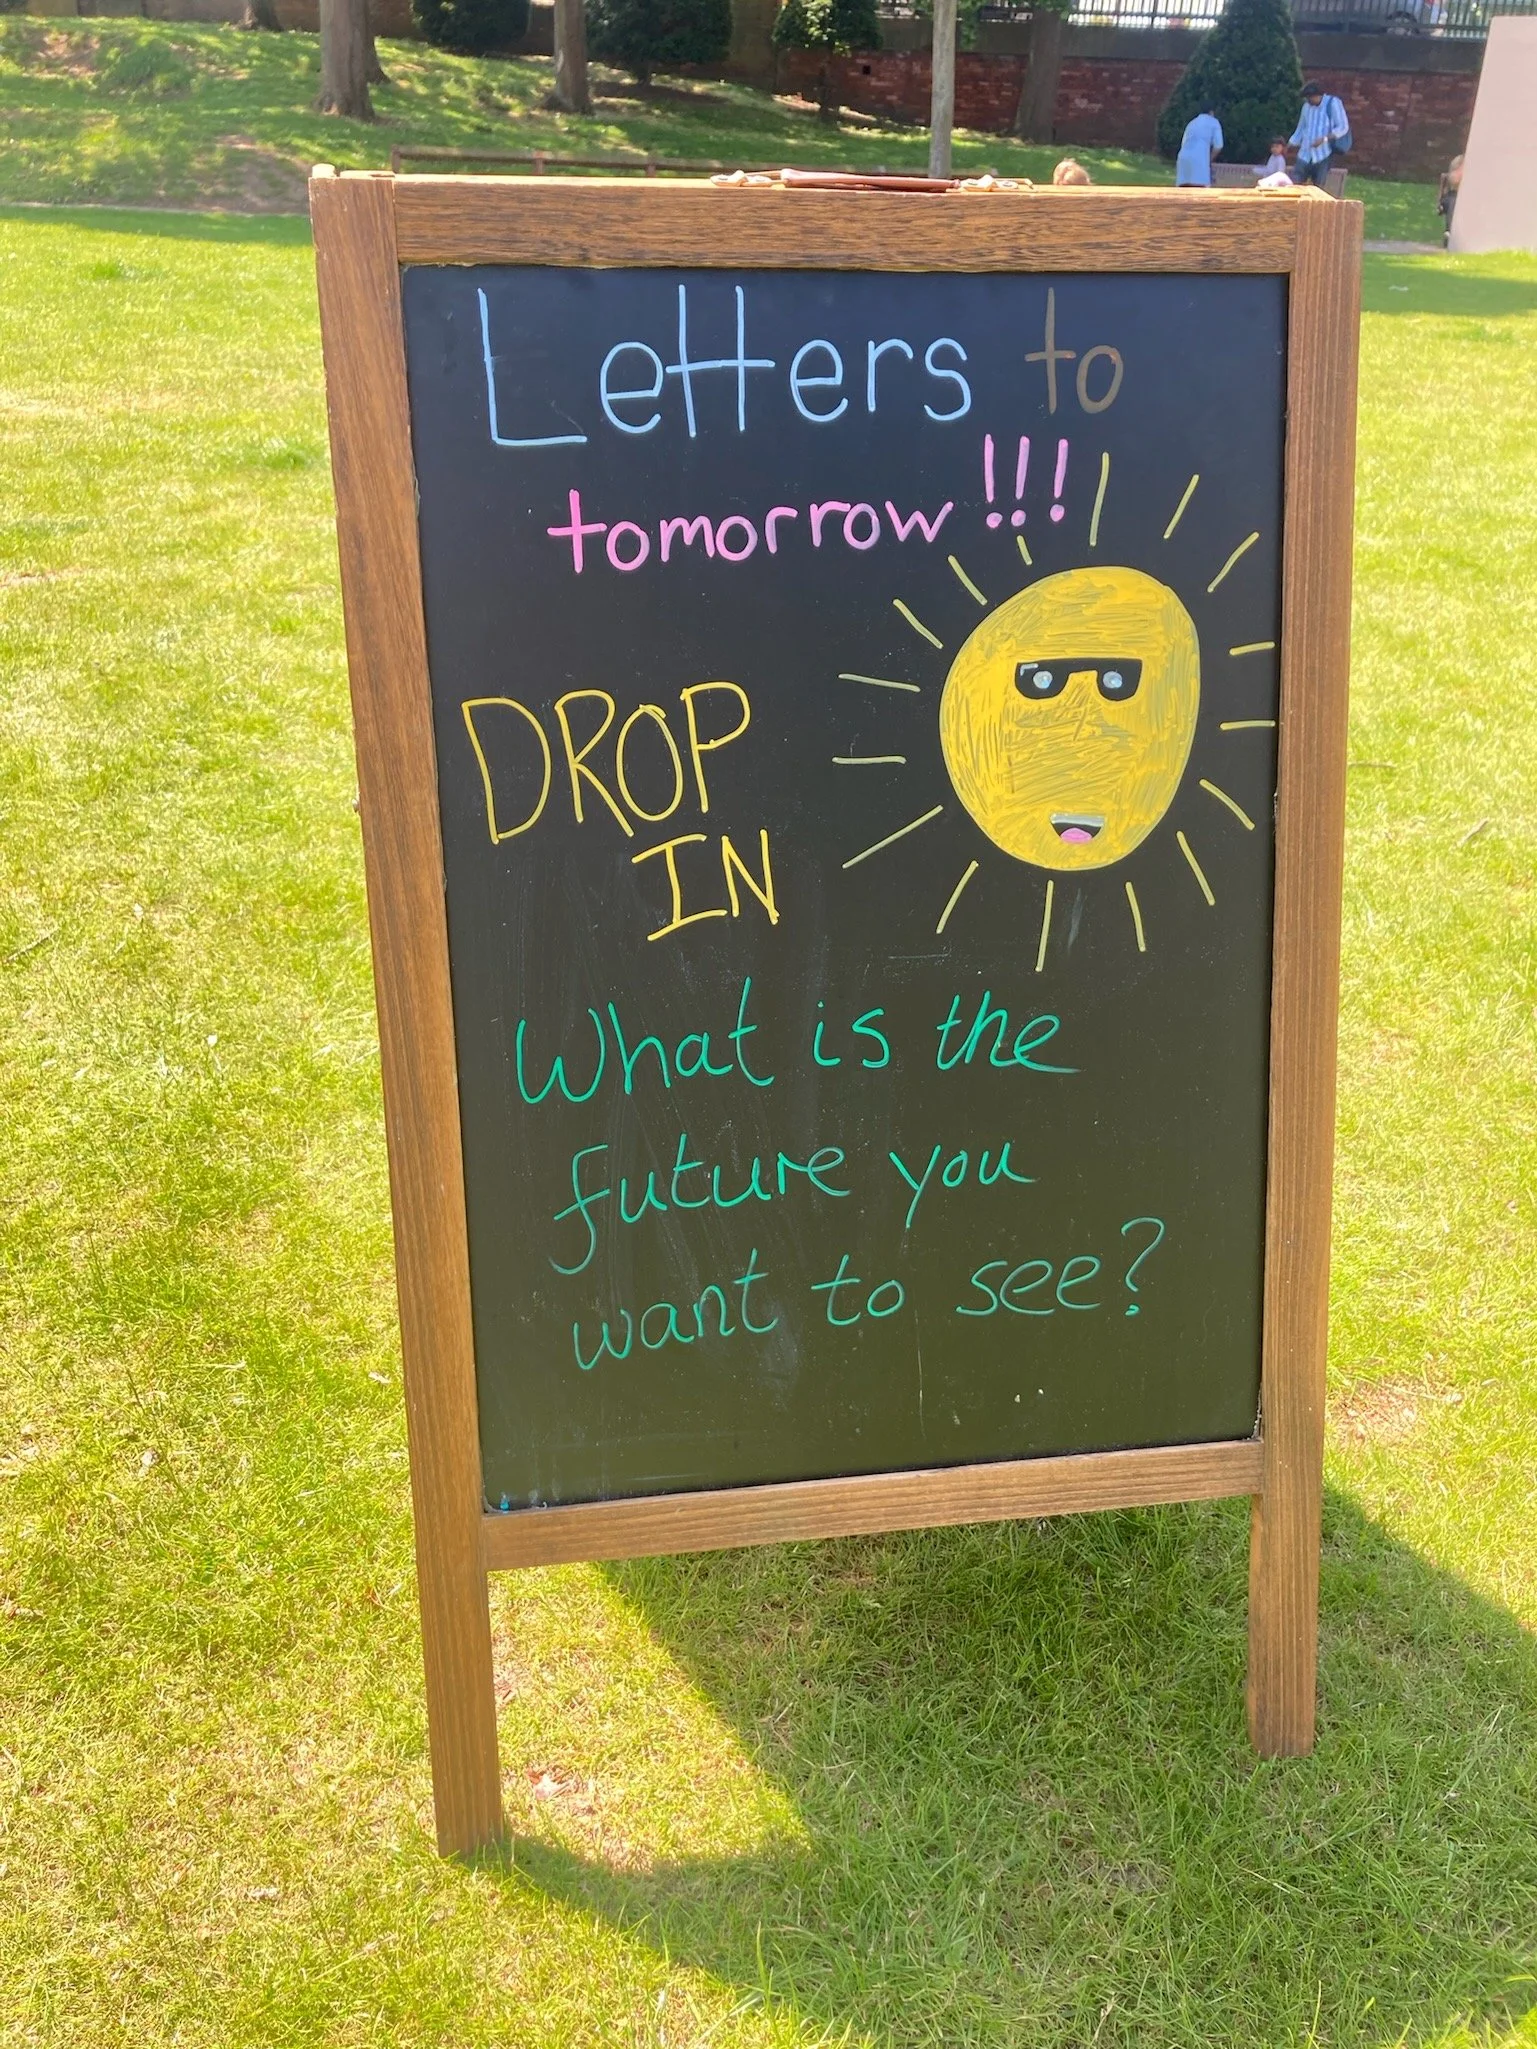 Letters to
tomorrow!!!
DROP
IN
What is the
future you
want to see?